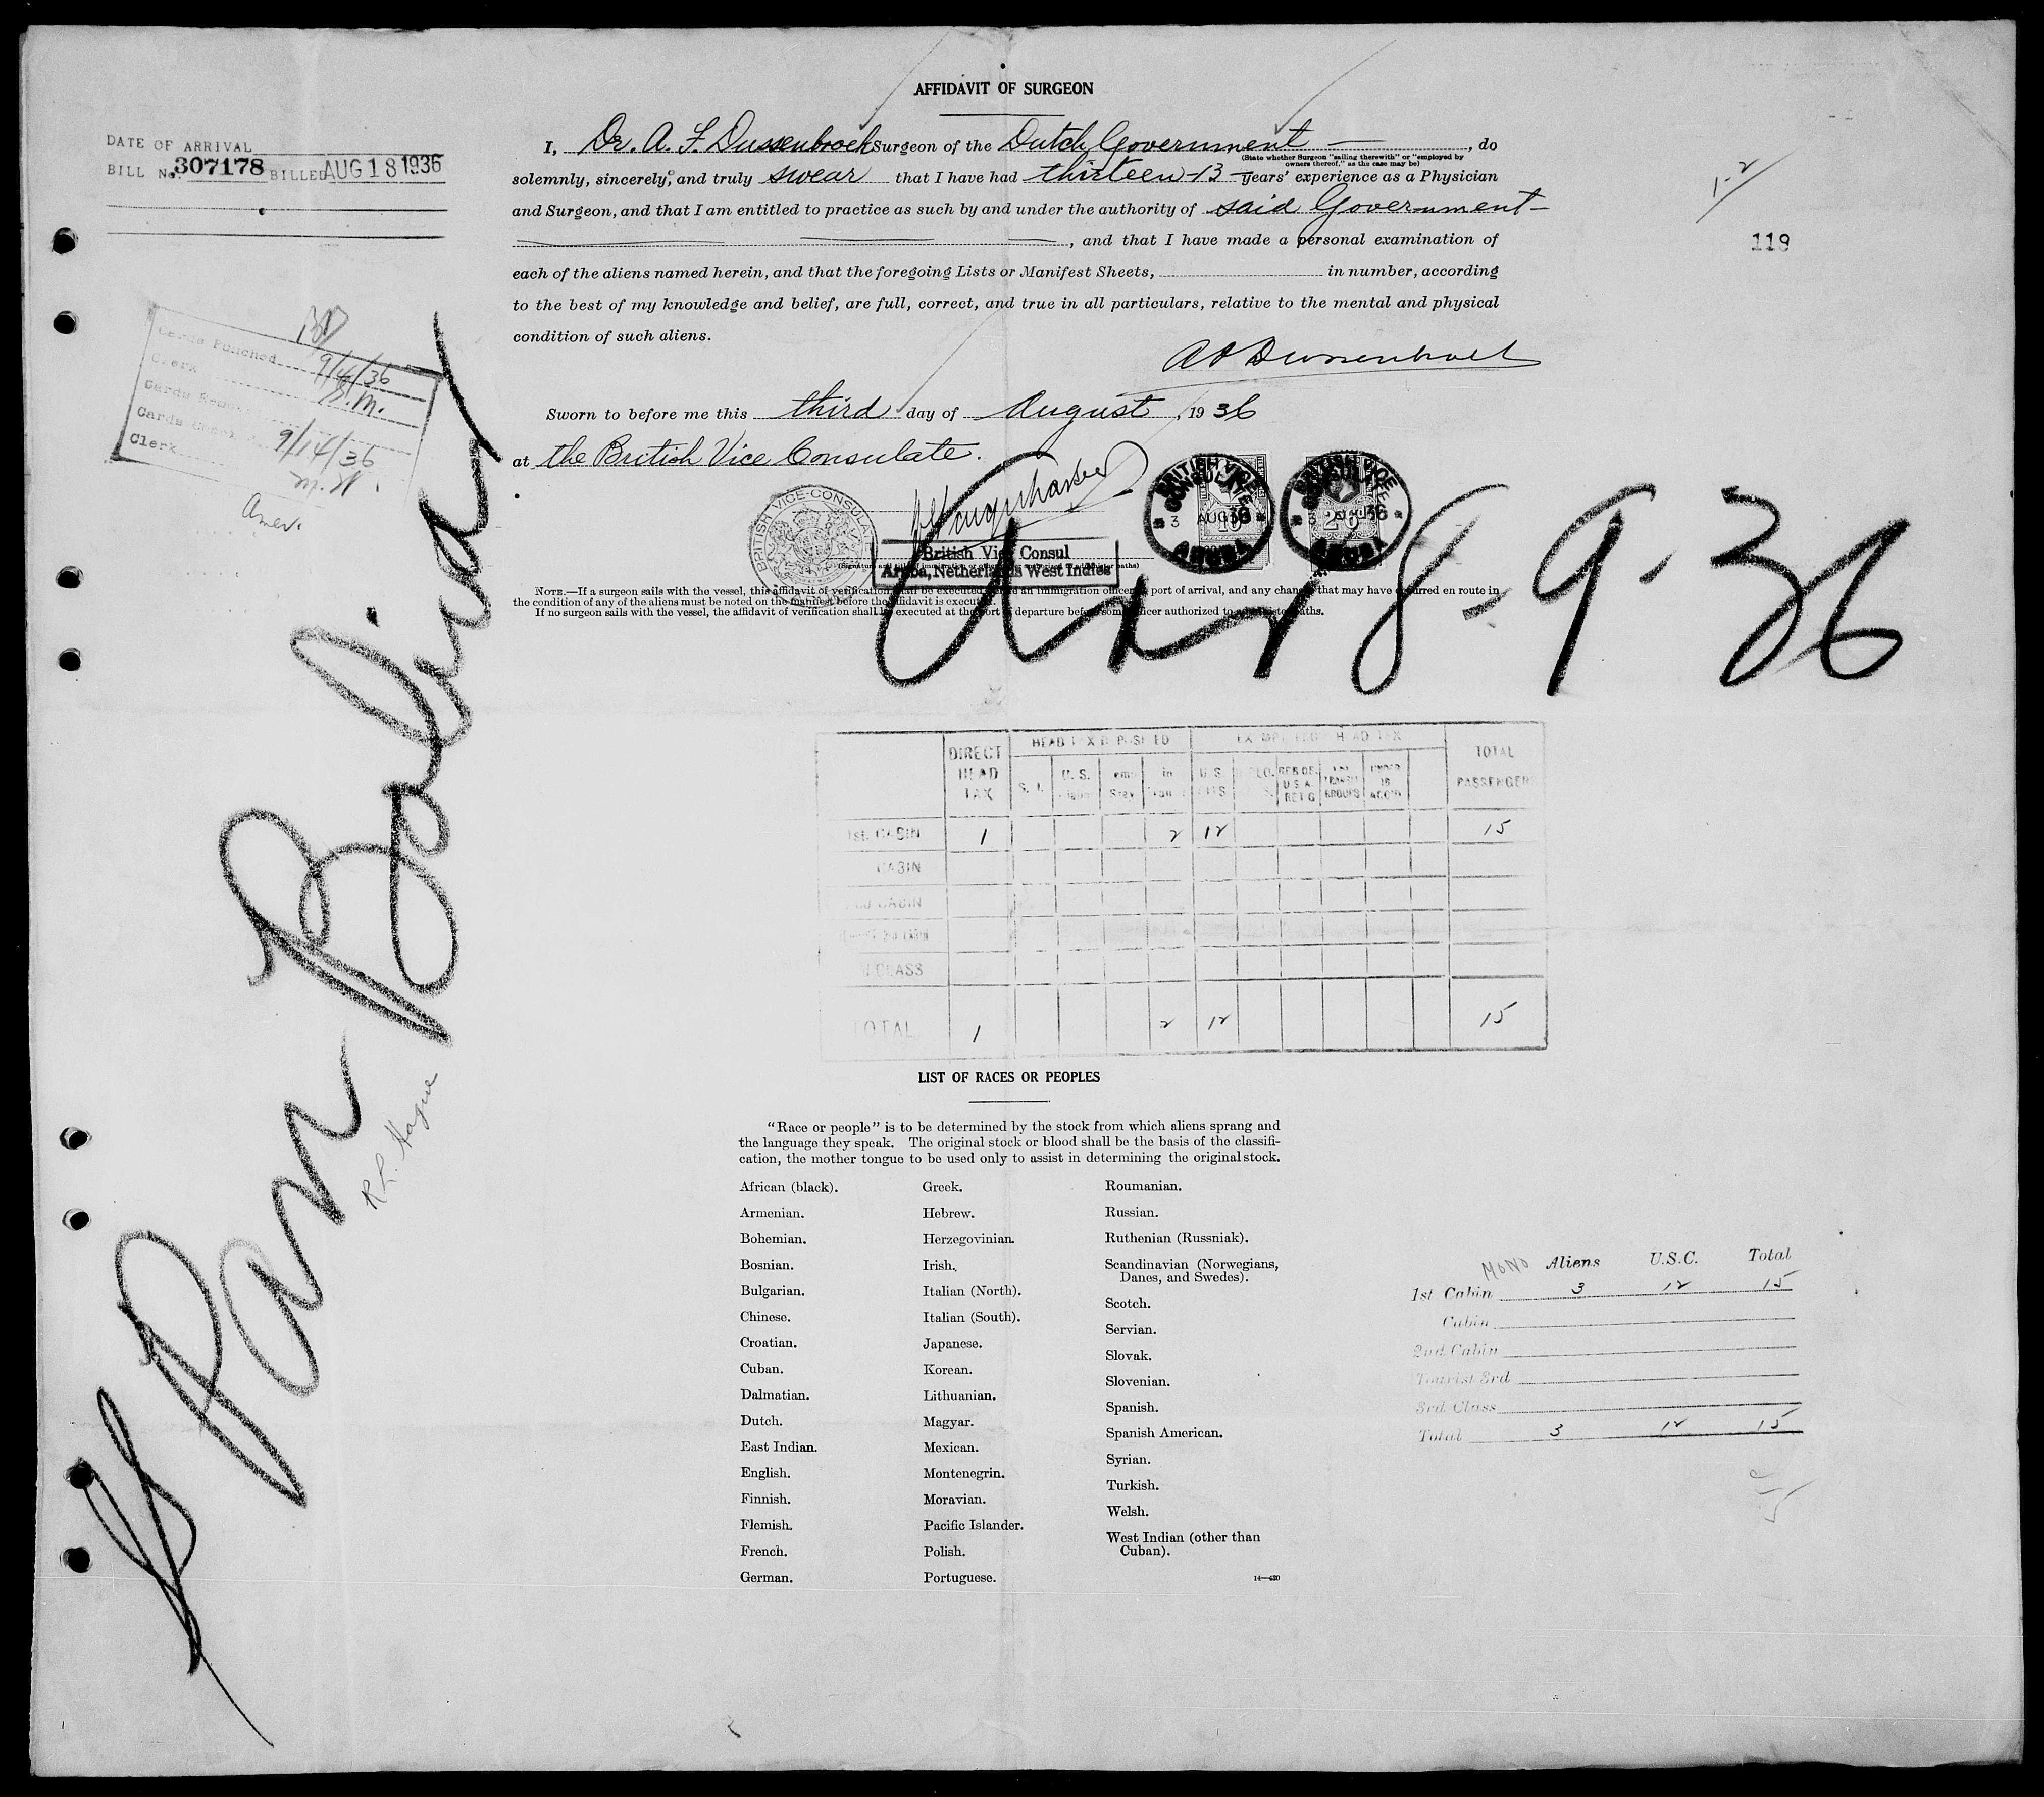 AFFIDAVIT OF SURGEON
DATE OF ARRIVAL
BILL No. 307178 BILLED AUG 18 1936
I, Dr. A. F. Dussenbroek Surgeon of the Dutch Government — , do
(State whether Surgeon "sailing therewith" or "employed by
owners thereof," as the case may be)
solemnly, sincerely, and truly swear that I have had thirteen - 13 - years' experience as a Physician
and Surgeon, and that I am entitled to practice as such by and under the authority of said Government -
, and that I have made a personal examination of
each of the aliens named herein, and that the foregoing Lists or Manifest Sheets, in number, according
to the best of my knowledge and belief, are full, correct, and true in all particulars, relative to the mental and physical
condition of such aliens.
1-2
119
Sworn to before me this third day of August, 1936
at the British Vice Consulate.
Cards Punched
9/14/36
Clerk E.M.
Cards
9/14/36
Clerk
BRITISH VICE-CONSULATE
British Vice Consul
Aruba, Netherlands West Indies
BRITISH VICE CONSULATE
3 AUG 36
ARUBA
BRITISH VICE CONSULATE
3 AUG 36
ARUBA
2/6
Arr 8-9-36
NOTE.—If a surgeon sails with the vessel, this affidavit of verification shall be executed an immigration officer port of arrival, and any change that may have occurred en route in
the condition of any of the aliens must be noted on the manifest before the affidavit is executed
If no surgeon sails with the vessel, the affidavit of verification shall be executed at the port of departure before some officer authorized to administer oaths.
SS Pan Bolivar
R.L. Hague
DIRECT HEAD TAX
HEAD TAX DEPOSITED
EXEMPT FROM HEAD TAX
TOTAL PASSENGERS
1st. CABIN 1 2 12 15
CABIN
2nd CABIN
CLASS
TOTAL 1 2 12 15
LIST OF RACES OR PEOPLES
"Race or people" is to be determined by the stock from which aliens sprang and
the language they speak. The original stock or blood shall be the basis of the classifi-
cation, the mother tongue to be used only to assist in determining the original stock.
African (black).
Armenian.
Bohemian.
Bosnian.
Bulgarian.
Chinese.
Croatian.
Cuban.
Dalmatian.
Dutch.
East Indian.
English.
Finnish.
Flemish.
French.
German.
Greek.
Hebrew.
Herzegovinian.
Irish.
Italian (North).
Italian (South).
Japanese.
Korean.
Lithuanian.
Magyar.
Mexican.
Montenegrin.
Moravian.
Pacific Islander.
Polish.
Portuguese.
Roumanian.
Russian.
Ruthenian (Russniak).
Scandinavian (Norwegians,
Danes, and Swedes).
Scotch.
Servian.
Slovak.
Slovenian.
Spanish.
Spanish American.
Syrian.
Turkish.
Welsh.
West Indian (other than
Cuban).
14—430
MONO Aliens U.S.C. Total
1st Cabin 3 12 15
Cabin
2nd Cabin
Tourist 3rd
3rd Class
Total 3 12 15